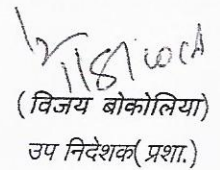 (विजय बोकोलिया)
उप निदेशक(प्रशा.)